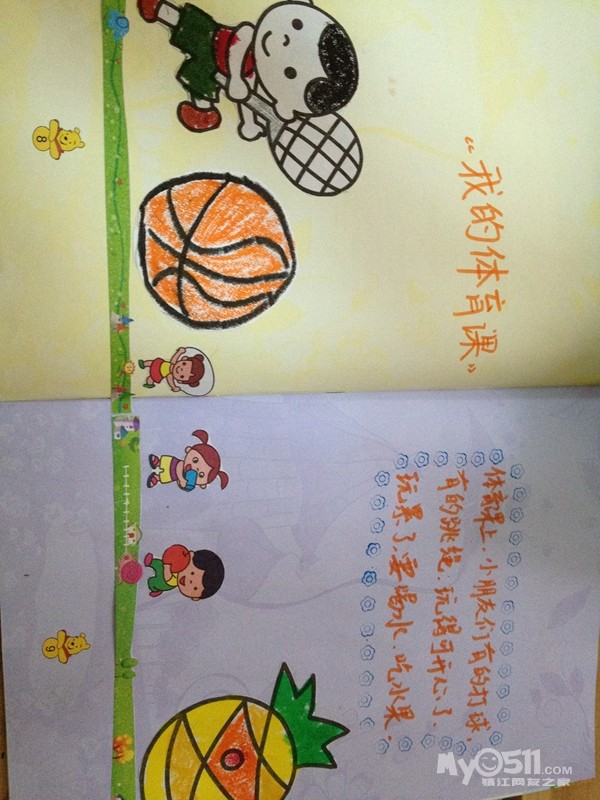 “我的体育课”
体育课上，小朋友们有的打球，
有的跳绳，玩得可开心了。
玩累了，要喝水、吃水果。
8
9
My0511.com
镇江网友之家